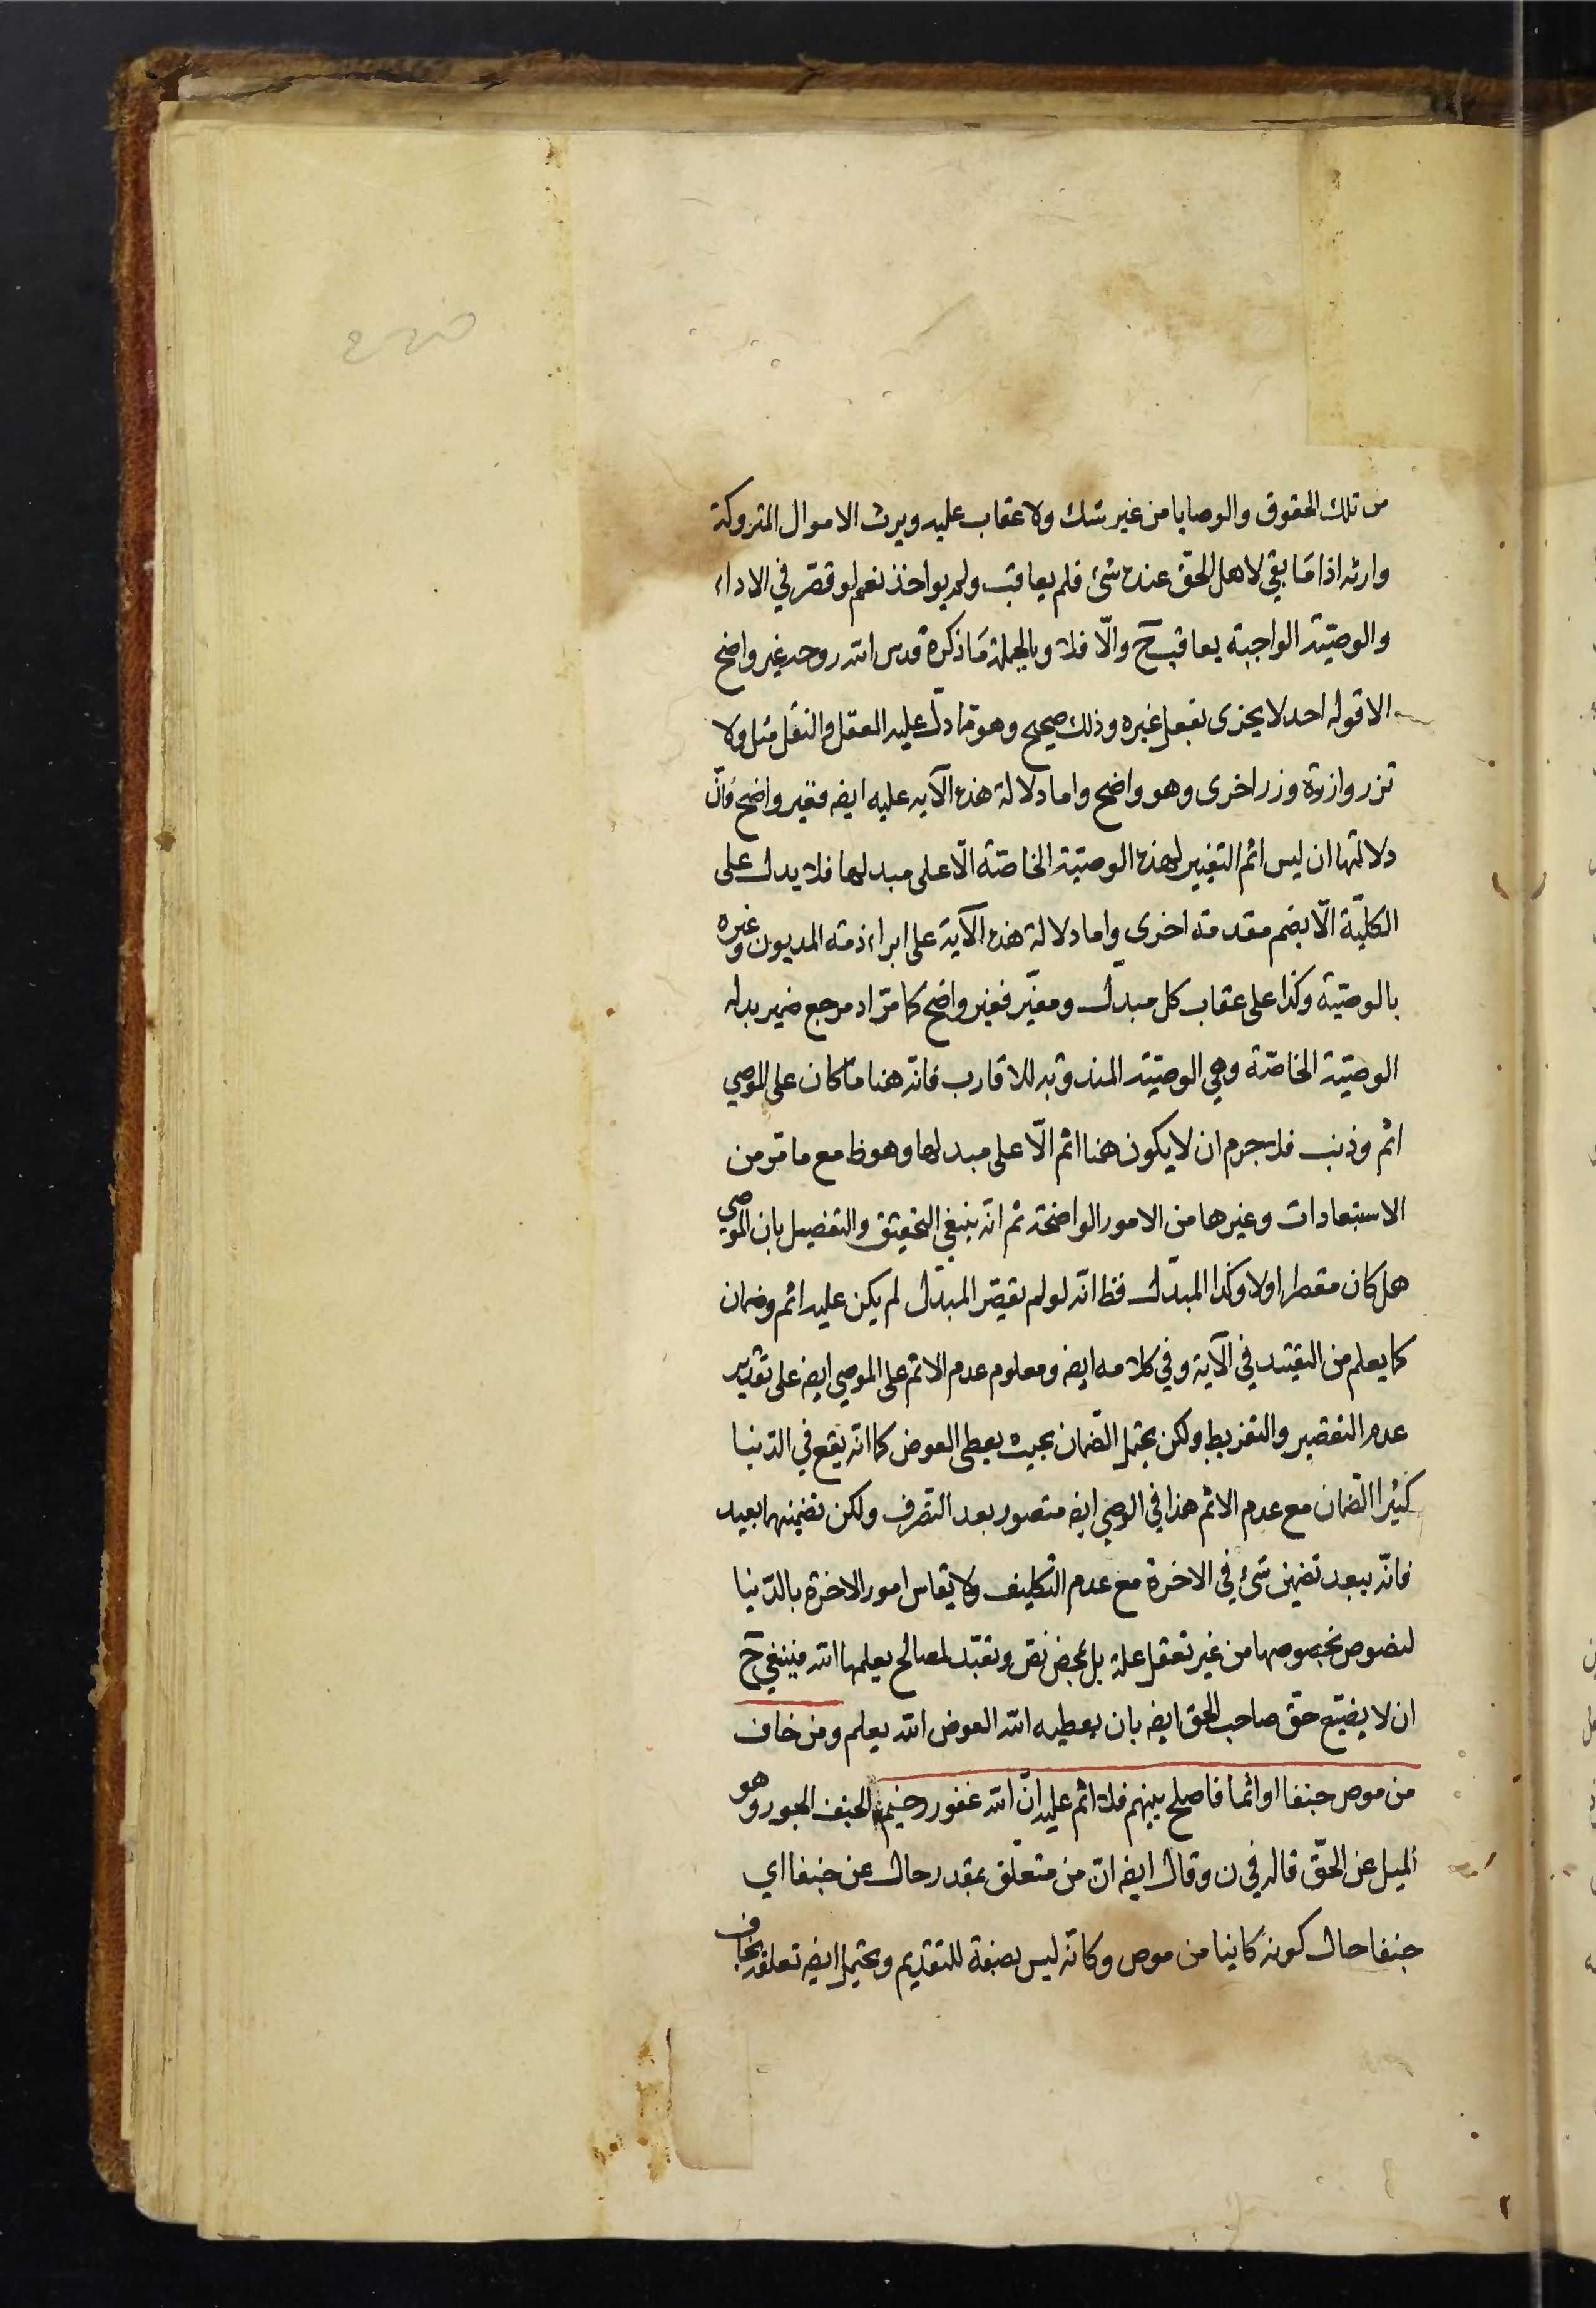 من تلك الحقوق والوصايا من غير شك ولا عقاب عليه ويرث الاموال المتروكة
وارثه اذا مَا بقي لاهل الحقّ عنده شئ فلم يعاقب ولم يواخذ نعم لو قصّر في الاداء
والوصيّة الواجبة يعاقب ح والّا فلا وبالجملة مَا ذكره قدس الله روحه غير واضح
الا قوله احد لا يجزى بفعل غيره وذلك صحيح وهو مما دلّ عليه العقل والنقل مثل ولا
تزر وازرة وزر اخرى وهو واضح واما دلالة هذه الآيه عليه ايضه فغير واضح فانّ
دلالتها ان ليس اثم التغيير لهذه الوصيّة الخاصّة الّا على مبدلها فلا يدل على
الكليّة الّا بضم مقدمة اخرى واما دلالة هذه الآية على ابراء ذمة المديون وغيره
بالوصيّة وكذا على عقاب كل مبدّل ومغيّر فغير واضح كما مرّ اد مرجع ضمير بدله
الوصيّة الخاصّة وهي الوصيّة المندوبة للاقارب فانّه هنا ما كان على الموصي
اثم وذنب فلا جرم ان لا يكون هنا اثم الّا على مبدلها وهو ظ مع ما مرّ من
الاستبعادات وغيرها من الامور الواضحة ثم انه ينبغي التحقيق والتفصيل بان الموصي
هل كان مقصرا اولا وكذا المبدّل فظ انّه لو لم يقصّر المبدّل لم يكن عليه اثم وضمان
كما يعلم من التقييد في الآية وفي كلامه ايضه ومعلوم عدم الاثم على الموصي ايضه على تقدير
عدم التقصير والتفريط ولكن يحتمل الضّمان بحيث يعطى العوض كما انّه يقع في الدّنيا
كثيرا الضّمان مع عدم الاثم هذا في الوصي ايضه متصور بعد التصرف ولكن تضمينهما بعيد
فانّه يبعد تضمين شئ في الاخرة مع عدم التكليف ولا يقاس امور الاخرة بالدّنيا
لنصوص بخصوصها من غير تعقل علة بل بمحض نصّ وتعبّد لمصالح يعلمها الله فينبغي ح
ان لا يضيّع حقّ صاحب الحق ايضه بان يعطيه الله العوض الله يعلم ومن خاف
من موص جنفا او اثما فاصلح بينهم فلا اثم عليه انّ الله غفور رحيم الجنف الجور وهو
الميل عن الحّق قاله في ن وقال ايضه انّ من متعلّق بمقدر حال عن جنفا اي
جنفا حال كونه كاينا من موص وكانه ليس بصفة للتقديم ويحتمل ايضه تعلقه بخاف